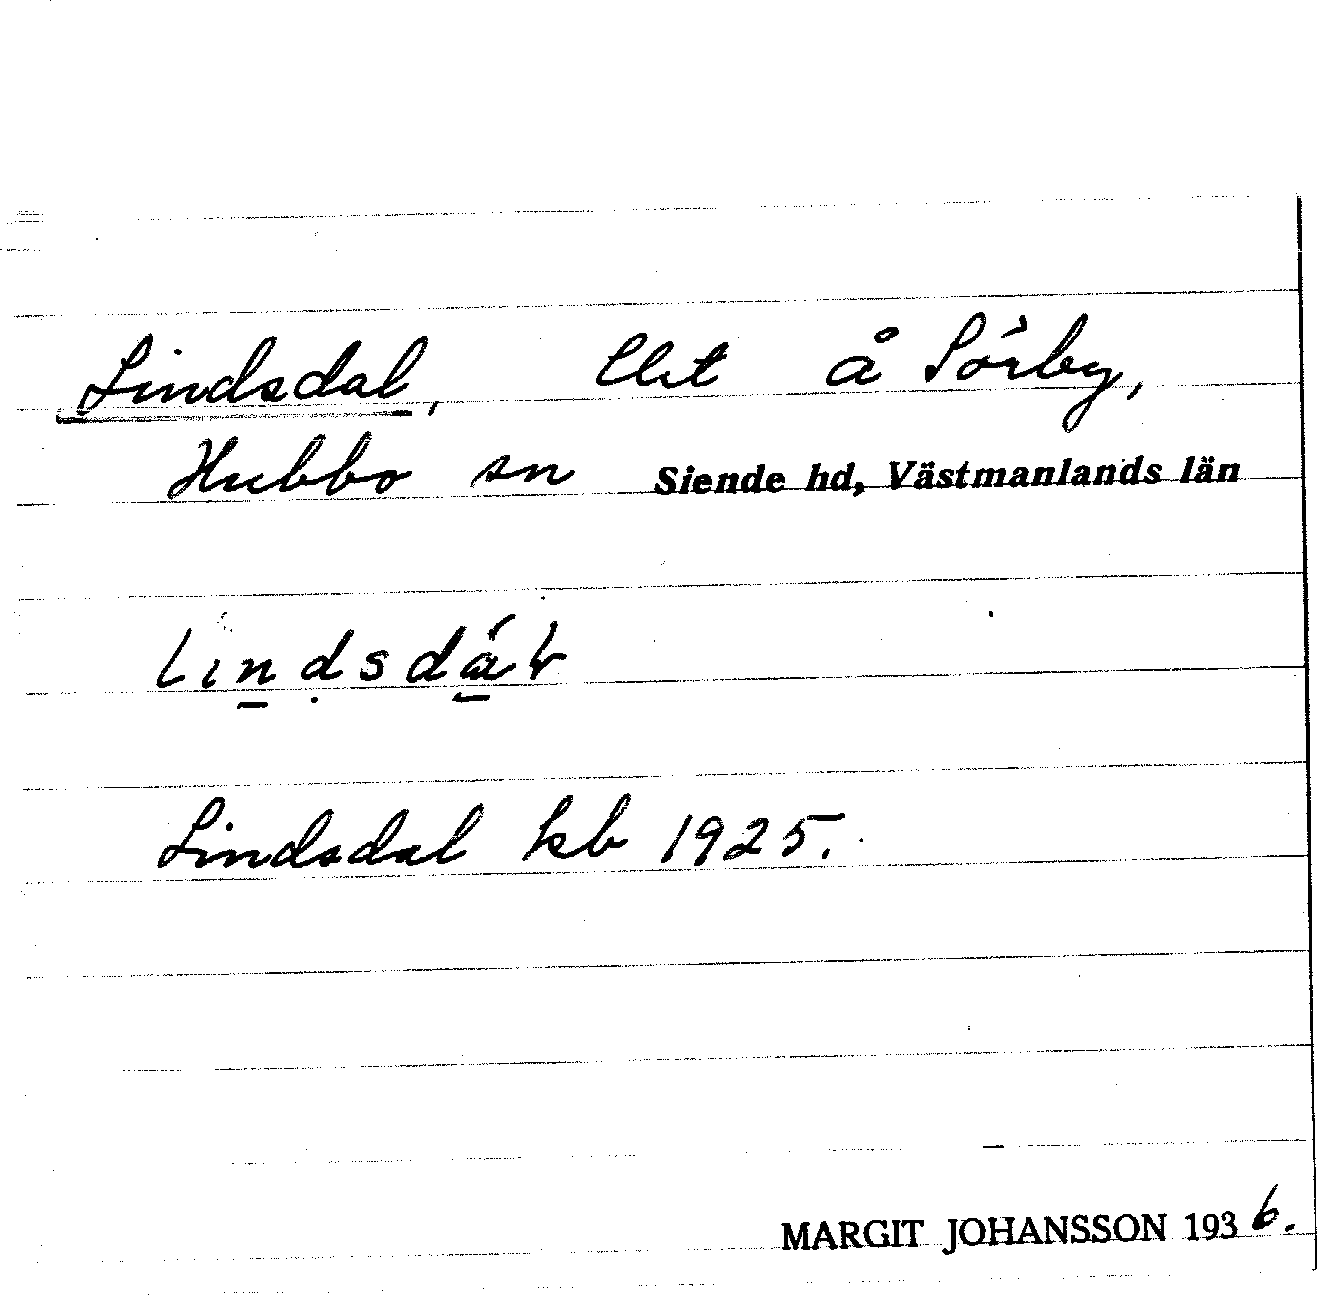 Lindsdal, lht å Sörby,
Hubbo sn Siende hd, Västmanlands län
Lindsdal kb 1925.
MARGIT JOHANSSON 1936.